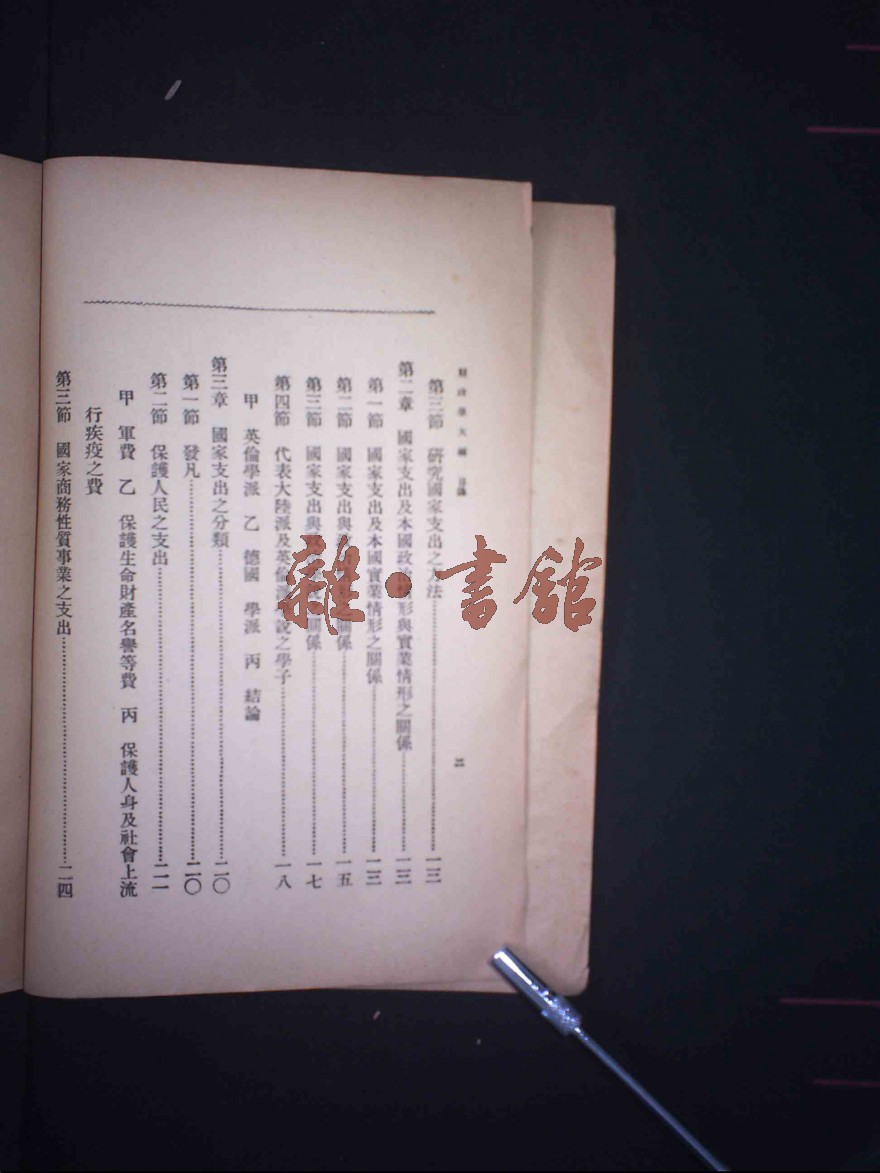 財政學大綱 目錄
二
第三節 研究國家支出之方法……一三
第二章 國家支出及本國政治情形與實業情形之關係……一三
第一節 國家支出及本國實業情形之關係……一三
第二節 國家支出與之關係……一五
第三節 國家支出與關係……一七
第四節 代表大陸派及英倫派說之學子……一八
甲 英倫學派 乙 德國 學派 丙 結論
第三章 國家支出之分類……二〇
第一節 發凡……二〇
第二節 保護人民之支出……二一
甲 軍費 乙 保護生命財產名譽等費 丙 保護人身及社會上流
行疾疫之費
第三節 國家商務性質事業之支出……二四
雜·書館